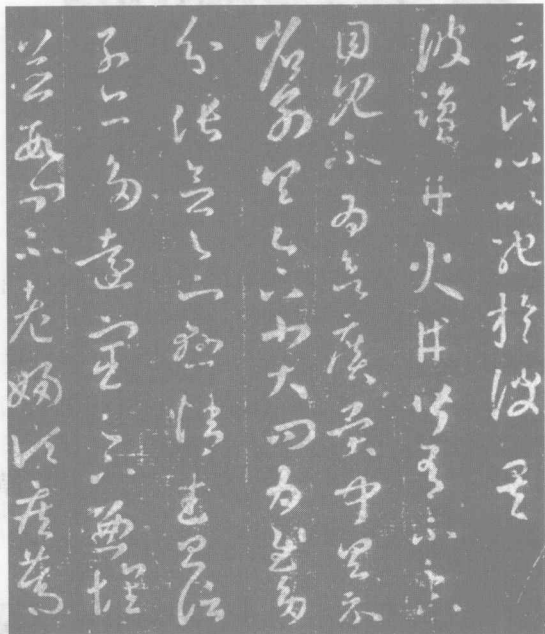 言此心以馳於彼矣
彼鹽井火井皆有不足下
目見不為欲廣異聞具示
省別具足下小大問為慰多
分張念足下懸情武昌諸
子亦多遠宦足下兼懷
並數問不老婦頃疾篤